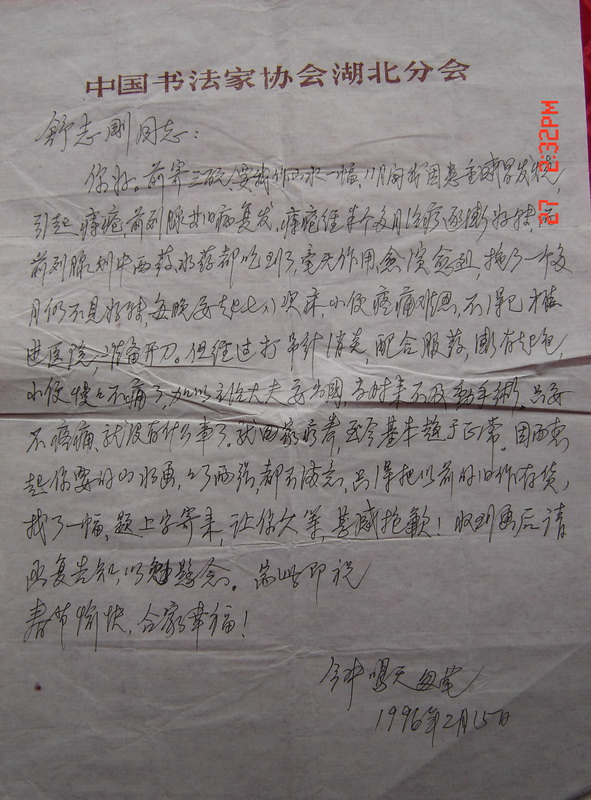 中国书法家协会湖北分会
27 2:32PM
舒志刚同志:
你好。前寄三砚,要我作山水一幅,八月间我因患重感冒发烧,
引起痔疮,前列腺等旧病复发,痔疮经半个多月治疗逐渐好转,而
前列腺则中西药,水药都吃到了,毫无作用,愈演愈烈,拖了一个多
月仍不见好转,每晚要起七八次床,小便疼痛难忍,不得已才住
进医院,准备开刀。但经过打吊针消炎,配合服药,渐有起色,
小便慢慢不痛了,加以主治大夫要出国,当时来不及动手术,只要
不疼痛,就没有什么事了。就回家疗养,至今基本趋于正常。因而想
起你要的山水画,画了两张,都不满意,只得把以前的旧作存货,
找了一幅,题上字寄来,让你久等,甚感抱歉!收到画后请
函复告知,以免悬念。耑此即祝
春节愉快,合家幸福!
钟鸣天
1996年2月15日